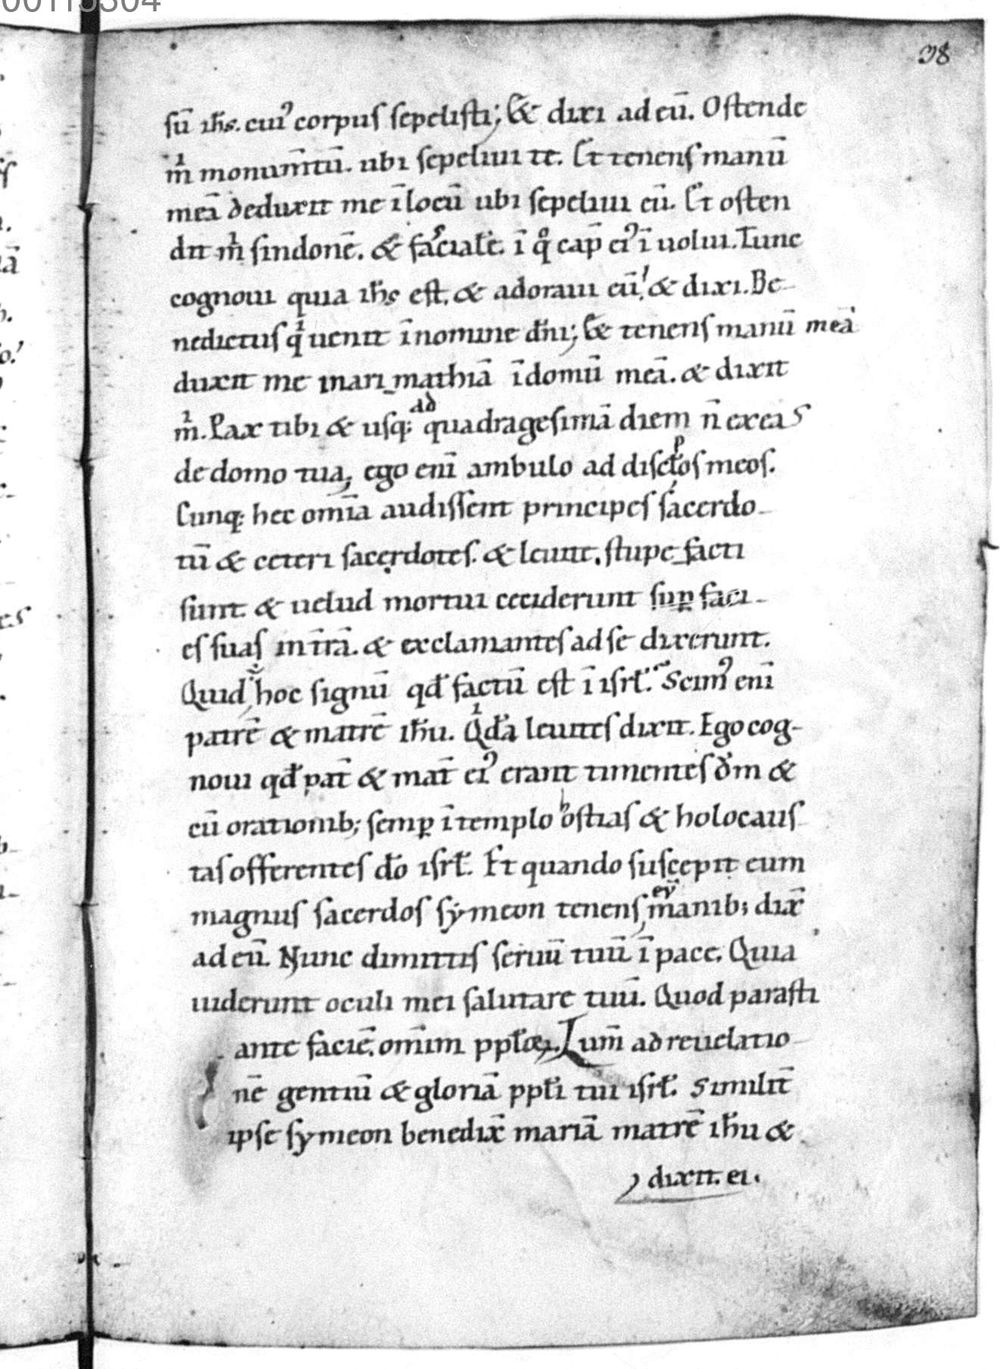 00115304
98
sū ihs. cui᾽ corpus sepelisti; Et dixi ad eū. Ostende
m̄ monum̄tū. ubi sepeliui te. Et tenens manū
meā deduxit me ī locū ubi sepeliui eū. Et osten
dit m̄ sindonē. & faciale. ī q° cap̄ ei᾽ īuolui. Tunc
cognoui quia ihs est. & adoraui eū. & dixi. Be-
nedictus q̄ uenit ī nomine dn̄i; Et tenens manū meā
duxit me in arimathiā ī domū meā. & dixit
m̄. Pax tibi & usq; ad quadragesimā diem n̄ exeas
de domo tua, ego enī ambulo ad discłos meos.
Cunq; hec om̄ia audissent principes sacerdo-
tū & ceteri sacerdotes. & leuite. stupefacti
sunt. & uelud mortui ceciderunt sup̄ faci-
es suas in t̄rā. & exclamantes ad se dixerunt.
Quid hoc signū qđ factū est ī isrł. Scim᾽ enī
patrē & matrē ih̄u. Qđā leuites dixit. Ego cog-
noui qđ pat̄ & mat̄ ei᾽ erant timentes dm̄ &
cū orationib; semp̄ ī templo hostias & holocaus
tas offerentes do̅ isrł. Et quando suscepit eum
magnus sacerdos symeon tenens eū manib; dix̄
ad eū. Nunc dimittis seruū tuū ī pace. Quia
uiderunt oculi mei salutare tuū. Quod parasti
ante faciē. om̄im ppłoꝝ. Lum̄ ad reuelatio
nē gentiū & gloriā ppłi tui isrł. Similit̄
ipse symeon benedix̄ mariā matrē ih̄u &
dixit. ei.